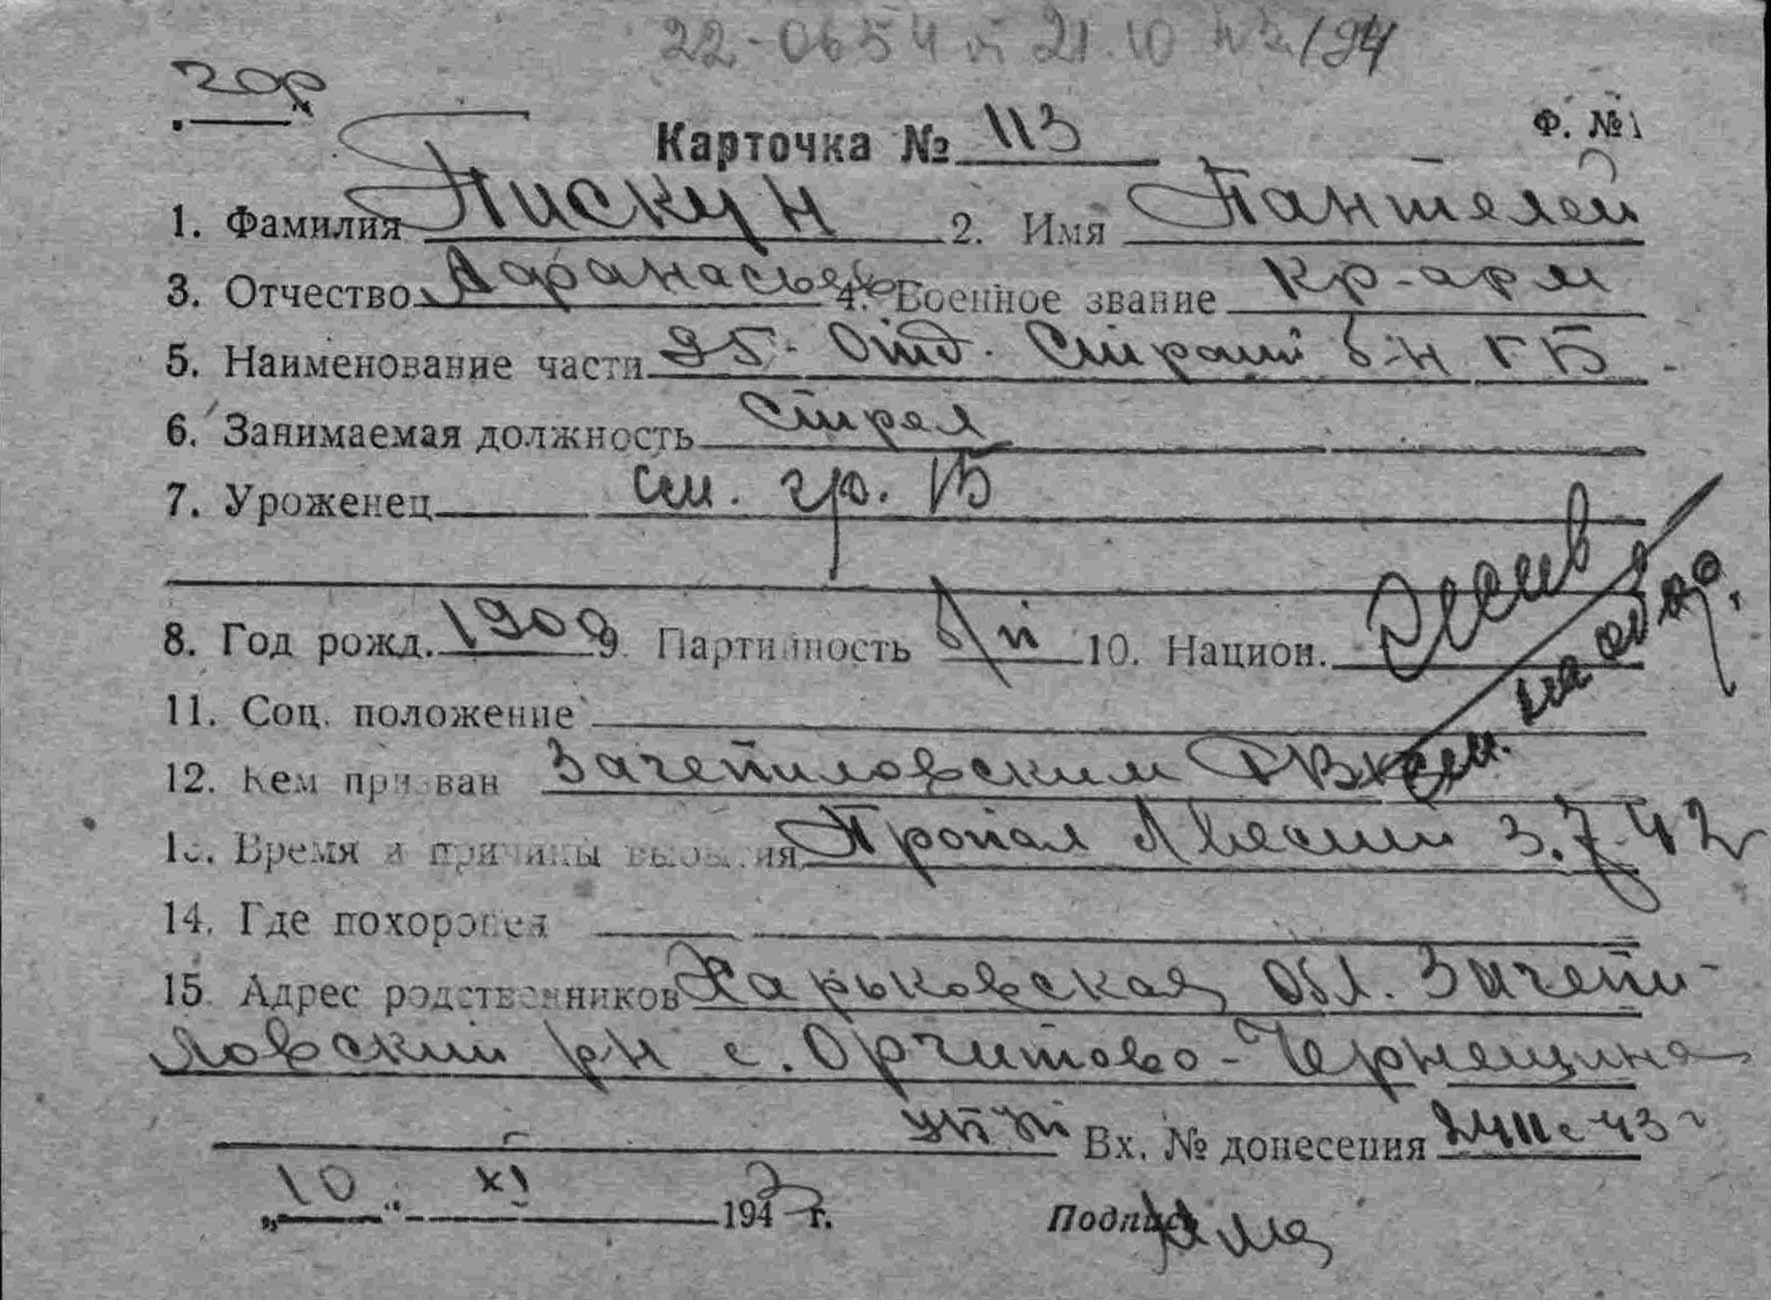 22-0654 от 21.10 43/194
гор
Карточка № 113
Ф. №1
1. Фамилия Пискун 2. Имя Пантелей
3. Отчество Афанасьев 4. Военное звание Кр-арм
5. Наименование части 95 Отд. Строит б-н ГБ
6. Занимаемая должность Стрел
7. Уроженец см. гр. 15
8. Год рожд. 1909 9. Партийность б/п 10. Национ.
см. на обор.
11. Соц. положение
12. Кем призван Зачепиловским РВК
13. Время и причины выбытия Пропал б вести 3.7.42
14. Где похоронен
15. Адрес родственников Харьковская Обл. Зачепи-
ловский р-н с. Орчитово-Чернещина
Вх. № донесения 2411с-43 г
„10“ XI 1943 г. Подпись